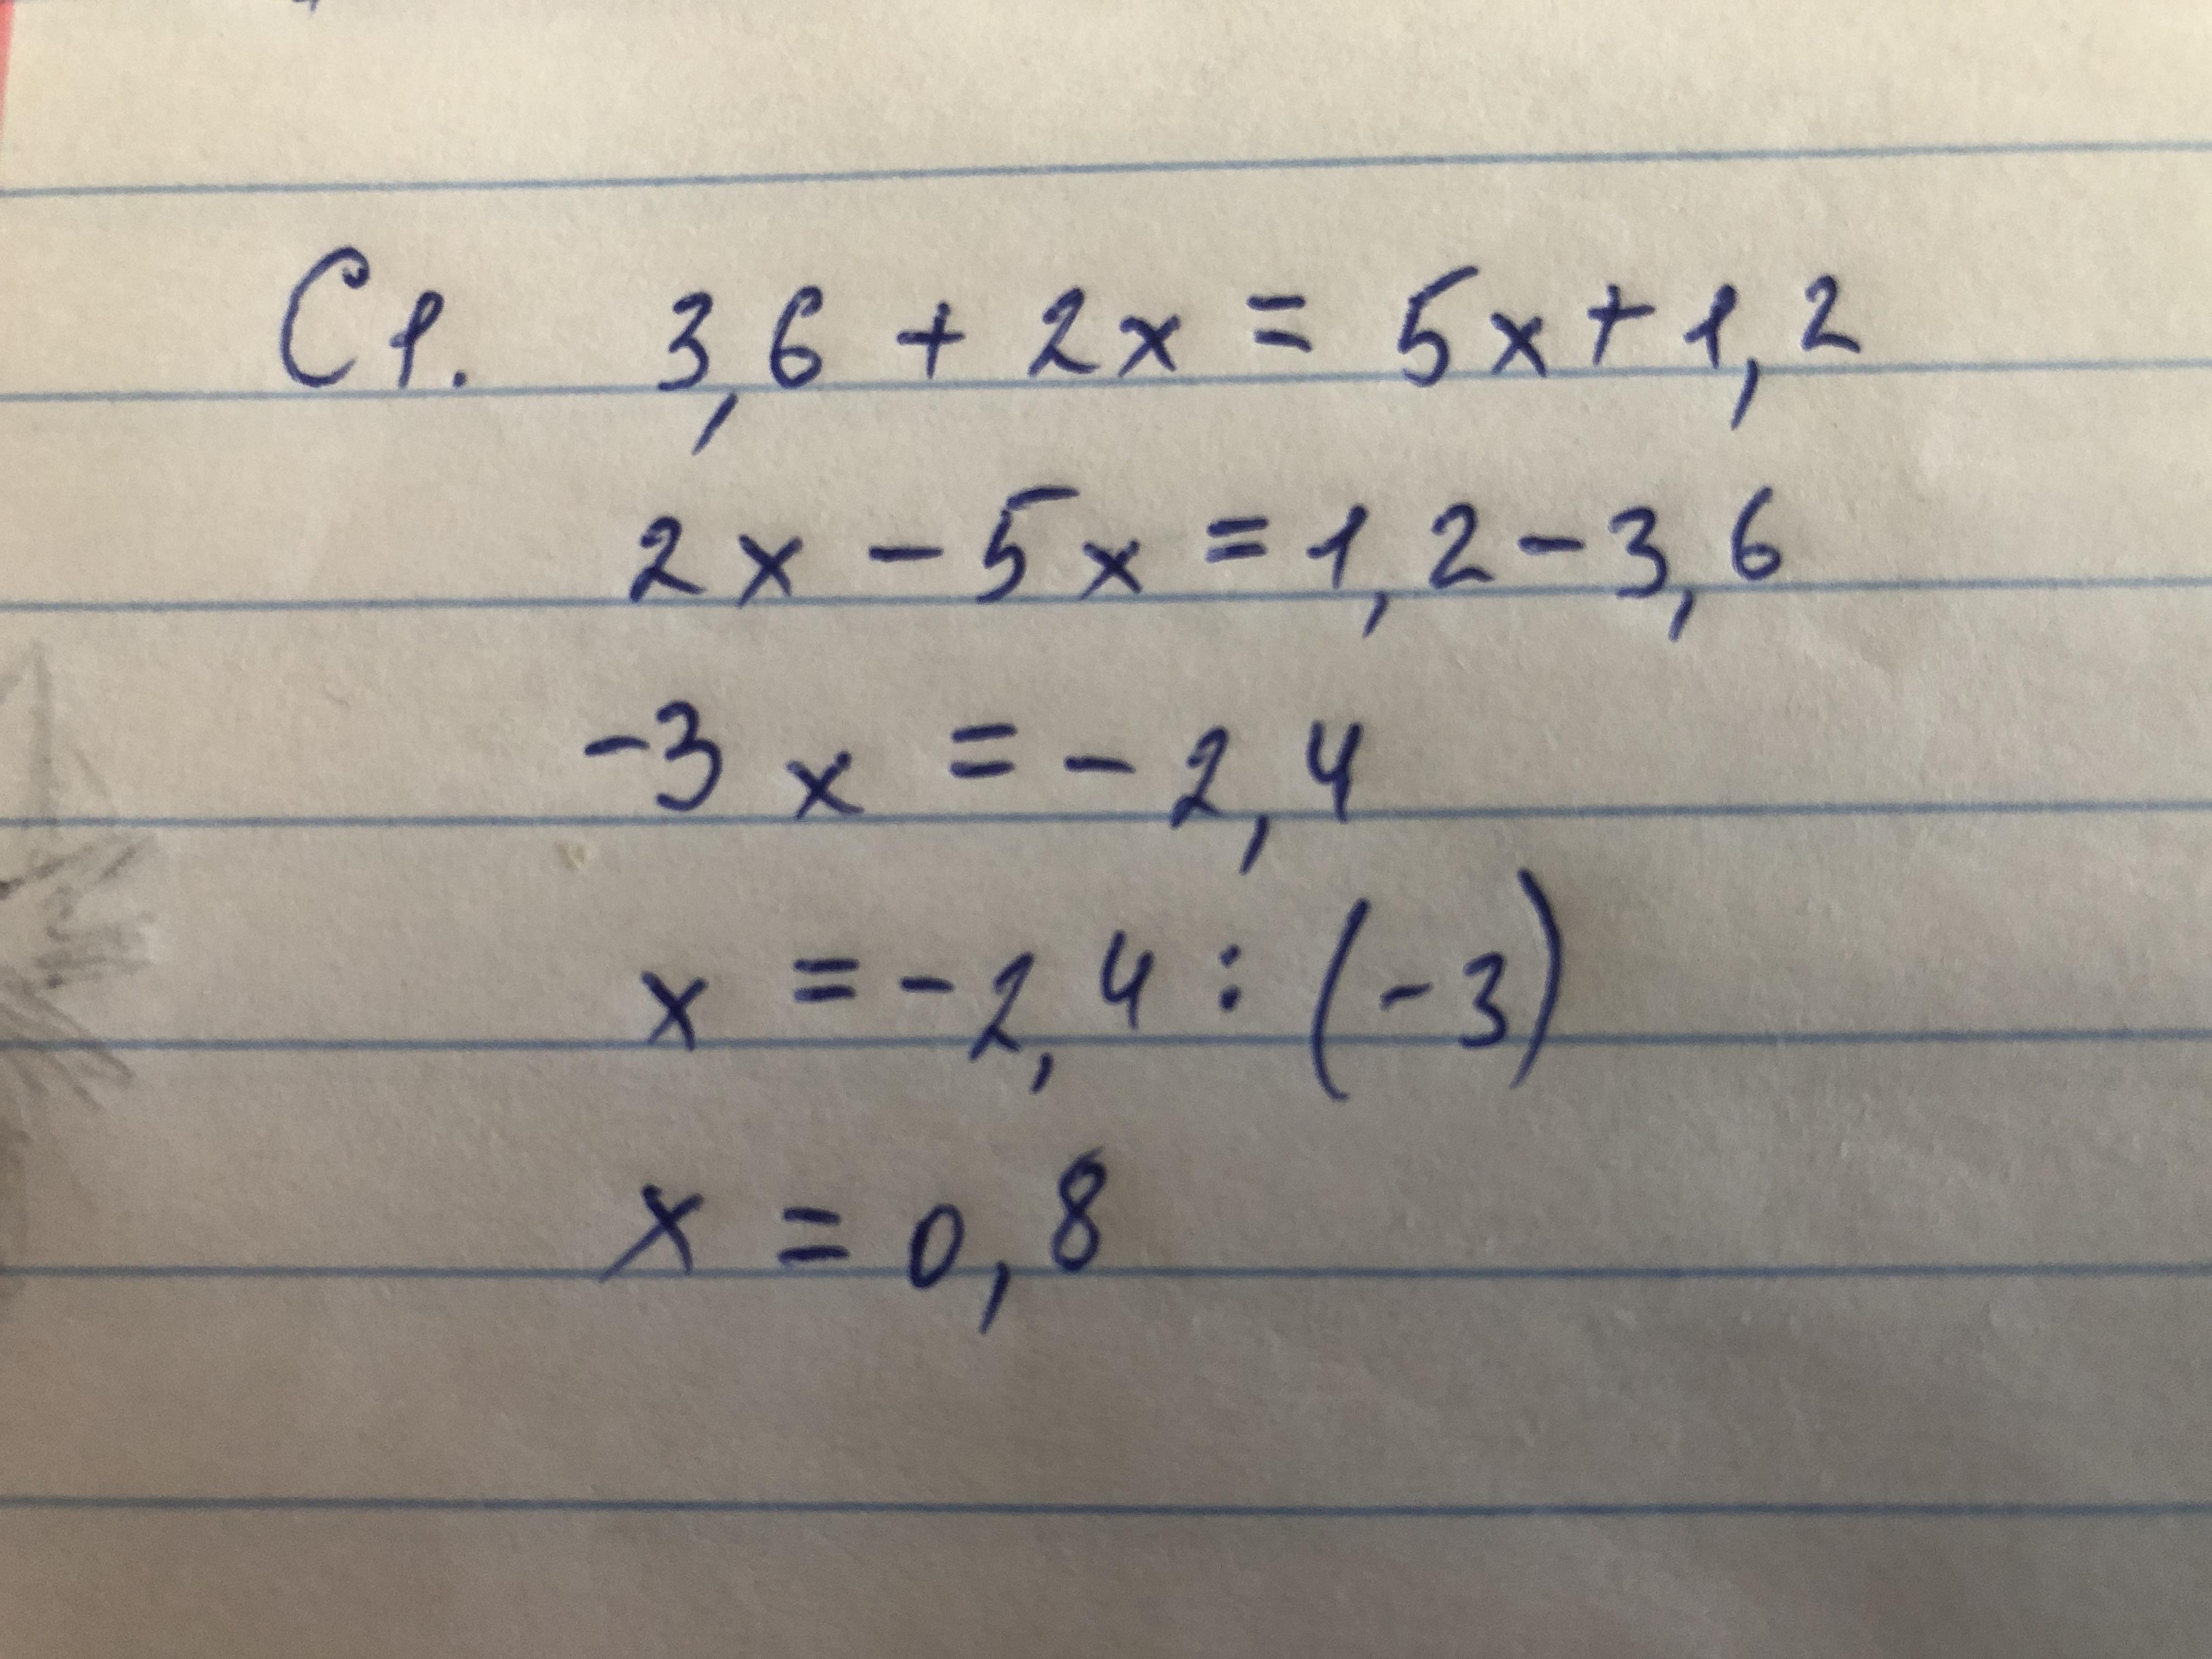 С1. 3,6 + 2x = 5x + 1,2
2x - 5x = 1,2 - 3,6
-3x = -2,4
x = -2,4 : (-3)
x = 0,8